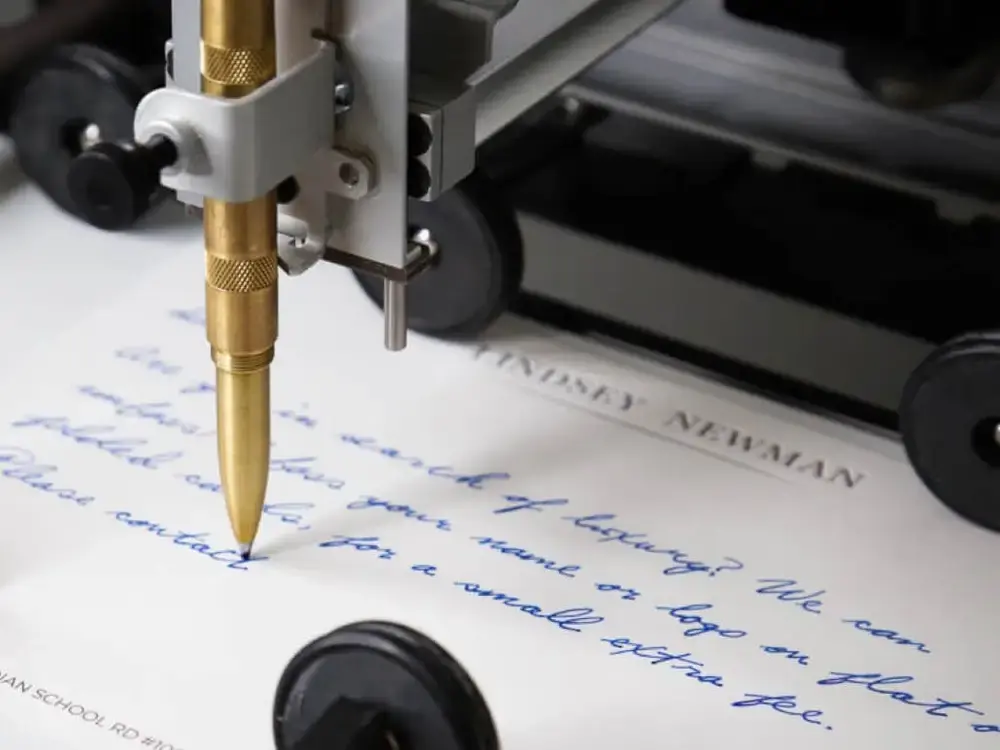 LINDSEY NEWMAN
Are in search of luxury? We can
emboss/ your name or logo on flat
folded cards, for a small extra fee.
Please contact
SCHOOL RD